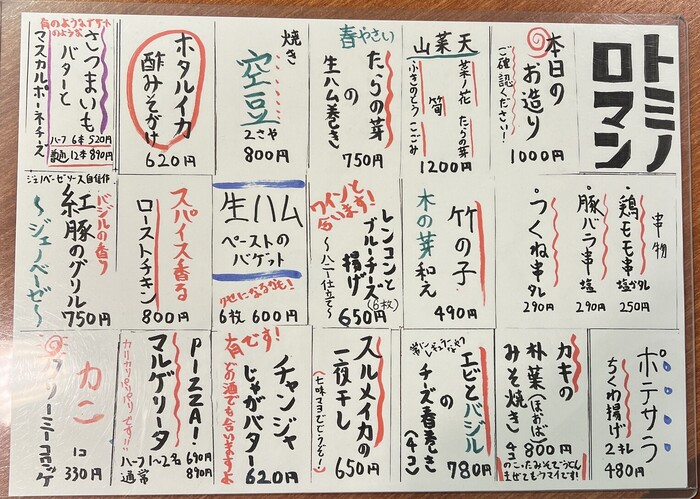 トミノ
ロマン
本日の
お造り
ご確認ください!
1000円
山菜天
菜ノ花 たらの芽
筍
ふきのとう こごみ
1200円
春やさい
たらの芽
の
生ハム巻き
750円
焼き
空豆
2さや
800円
ホタルイカ
酢みそがけ
620円
さつまいも
バターと
マスカルポーネチーズ
ハーフ 6本 520円
普通 12本 890円
串物
・鶏モモ串
塩かタレ
250円
・豚バラ串
塩
290円
・つくね串
タレ
290円
竹の子
木の芽和え
490円
ワインと
合います!
レンコンと
ブルーチーズ
揚げ
(6枚)
〜ハニー仕立て〜
650円
生ハム
ペーストの
バゲット
クセになるかも!
6枚 600円
スパイス香る
ローストチキン
800円
ジェノベーゼソース自家作
バジルの香り
紅豚のグリル
〜ジェノベーゼ〜
750円
ポテサラ
ちくわ揚げ
2キレ
480円
カキの
朴葉(ほおば)
みそ焼き
4コ
800円
のこったみそでうどん
まぜてもウマイです!
エビとバジル
の
チーズ春巻き
(4コ)
780円
スルメイカの
一夜干し
(七味マヨでどうぞ!)
650円
有です!
チャンジャ
じゃがバター
どの酒でも合いますよ
620円
PIZZA!
マルゲリータ
カリカリパリパリです!!
ハーフ 1〜2名 690円
通常 890円
カニ
クリーミーコロッケ
1コ
330円